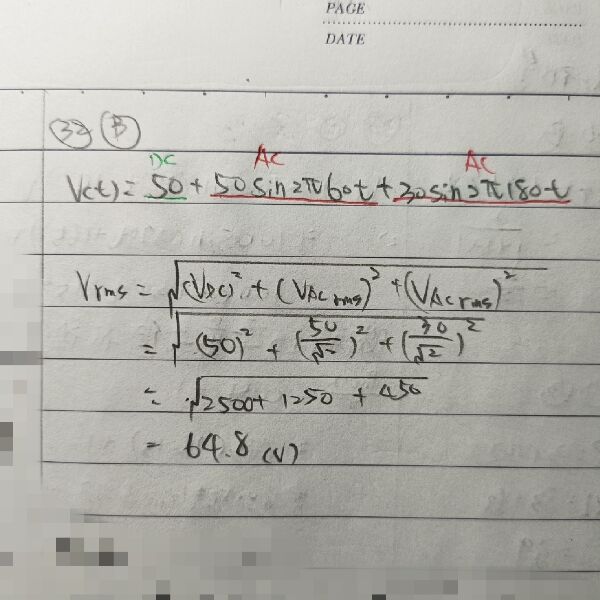 PAGE
DATE
32 B
DC AC AC
V(t) = 50 + 50 sin 2π60t + 30 sin 2π180t
Vrms = √(VDC)² + (VAC rms)² + (VAC rms)²
= √(50)² + (50/√2)² + (30/√2)²
= √2500 + 1250 + 450
= 64.8 (V)